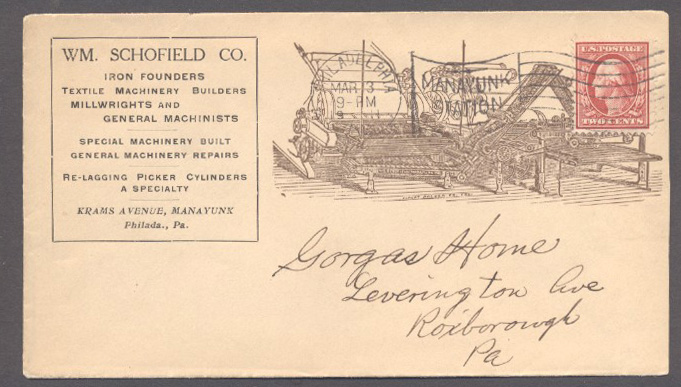 WM. SCHOFIELD CO.
IRON FOUNDERS
TEXTILE MACHINERY BUILDERS
MILLWRIGHTS AND
GENERAL MACHINISTS
SPECIAL MACHINERY BUILT
GENERAL MACHINERY REPAIRS
RE-LAGGING PICKER CYLINDERS
A SPECIALTY
KRAMS AVENUE, MANAYUNK
Philada., Pa.
PHILADELPHIA
MAR 3
9-PM
MANAYUNK
STATION
U.S. POSTAGE
TWO CENTS
Gorgas Home
Leverington Ave
Roxborough
Pa